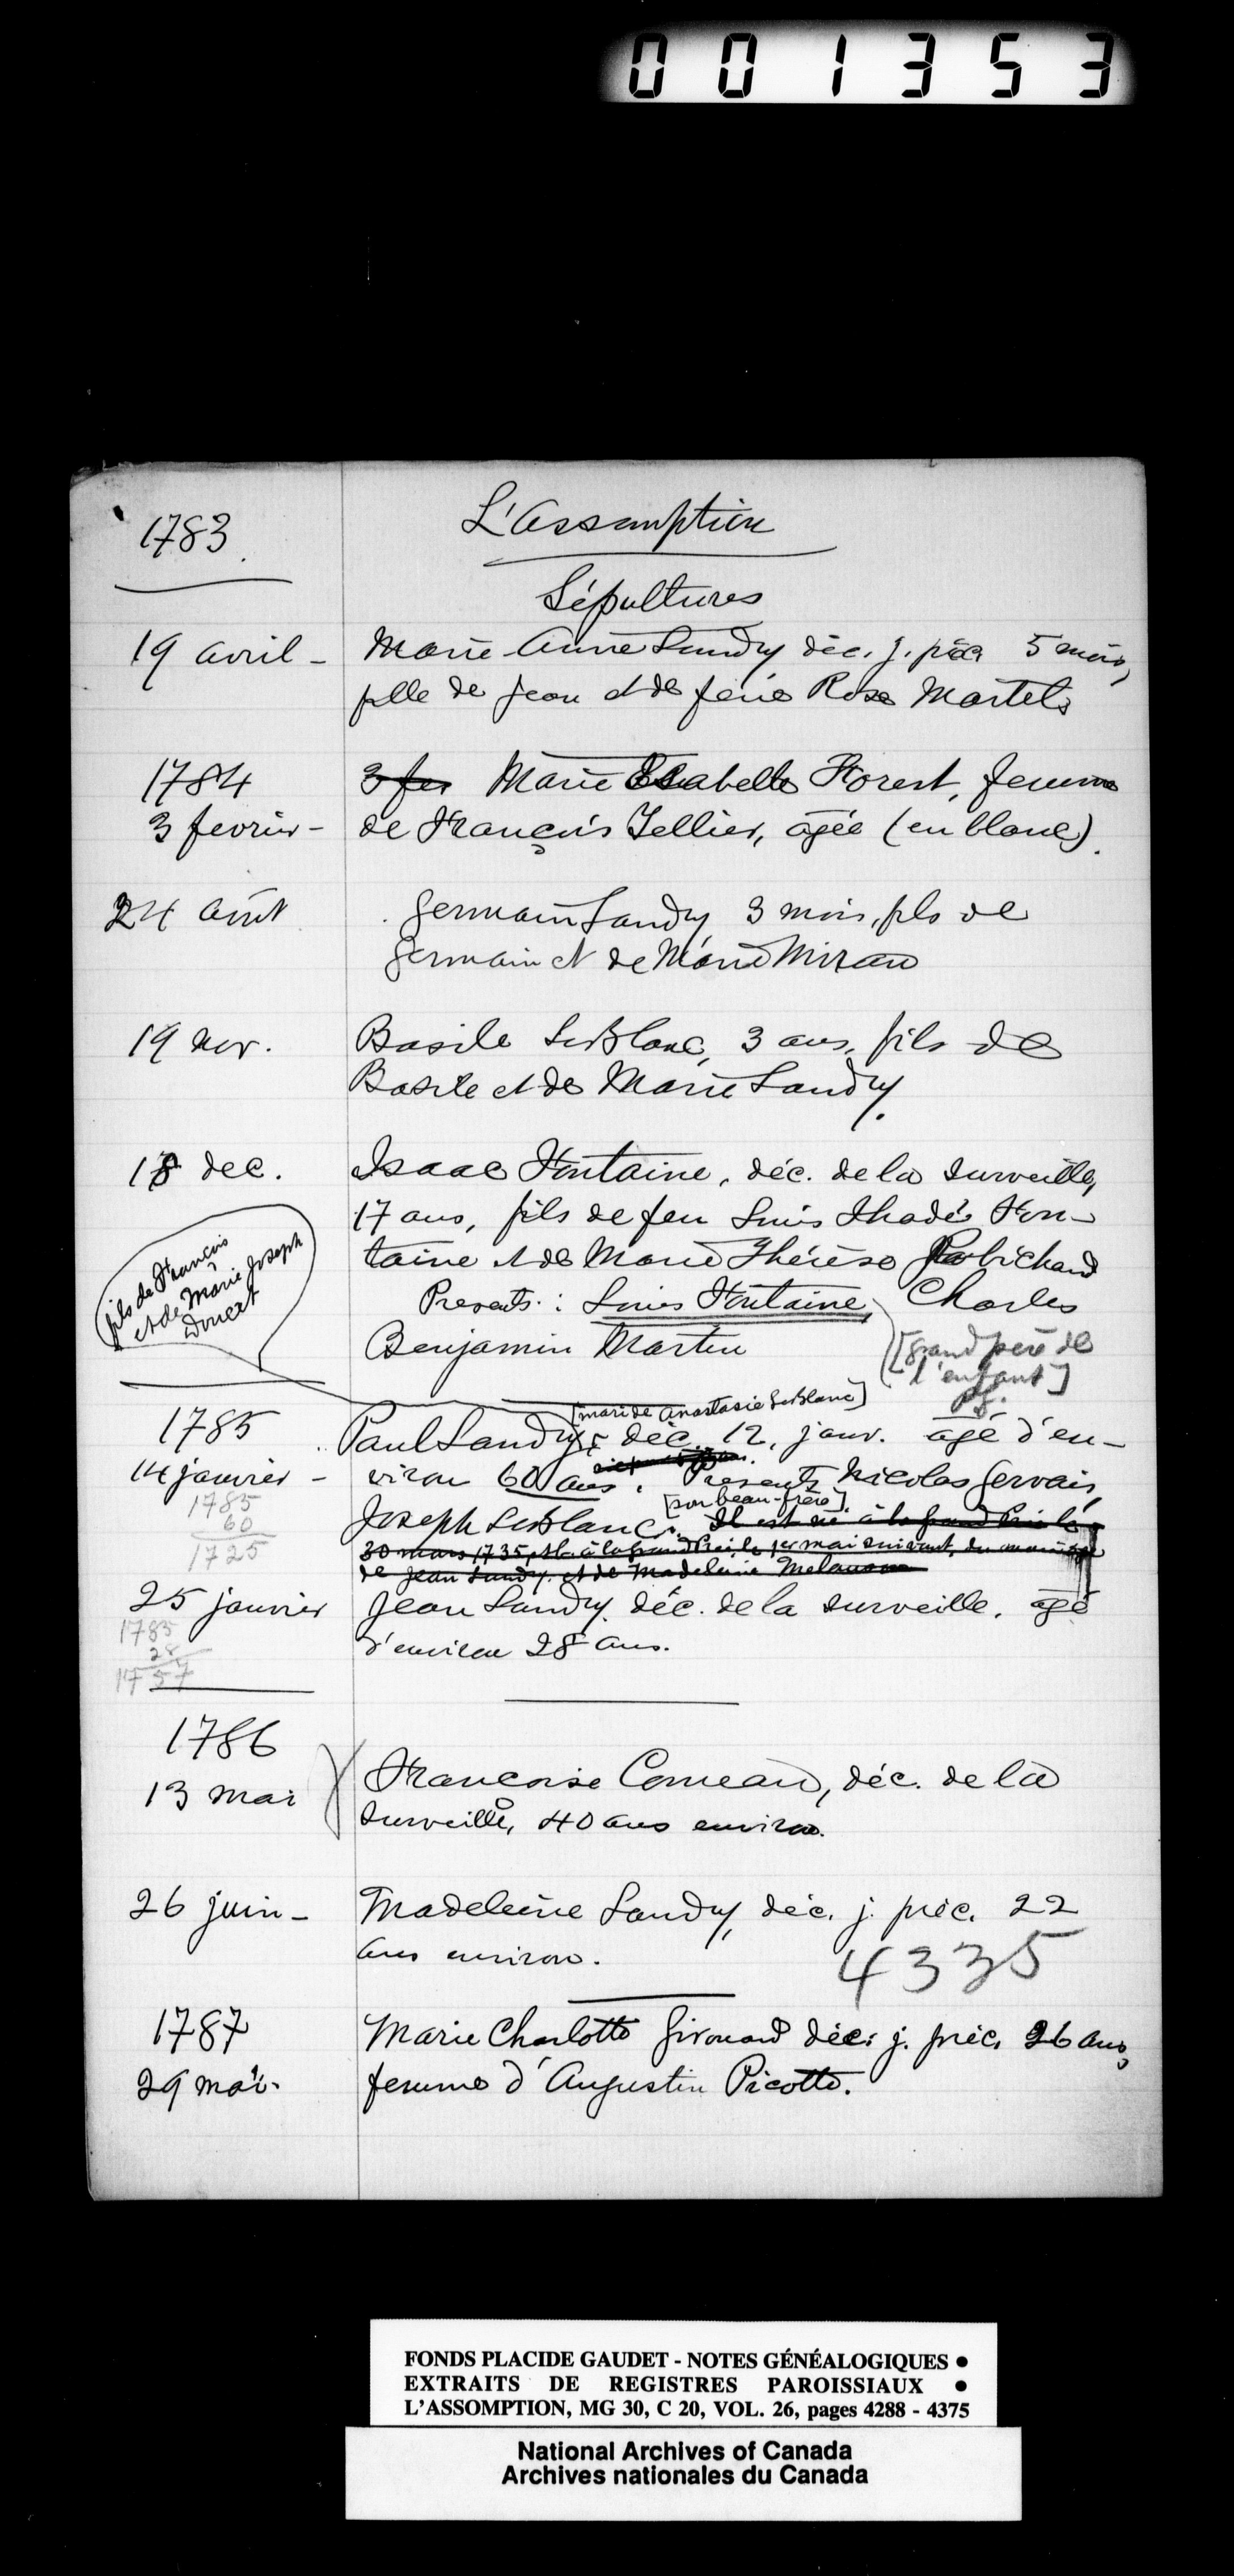 001353
1783 L'Assomption
Sépultures
19 avril - Marie Anne Landry déc. j. préc. 5 mois,
fille de Jean et de feue Rose Martel
1784 3 fev Marie Elsabelle Forest, femme
3 fevrier - de François Tellier, âgée (en blanc).
24 août Germain Landry 3 mois, fils de
Germain et de Marie Mirau
19 nov. Basile LeBlanc, 3 ans, fils de
Basile et de Marie Landry.
18 dec. Isaac Fontaine, déc. de la surveille,
17 ans, fils de feu Louis Thadé Fon-
taine et de Marie Thérèse Robichaud
Presents : Louis Fontaine, Charles
Benjamin Martin
[grand père de
l'enfant]
P.G.
fils de François
et de Marie Joseph
Doucet
[mari de Anastasie LeBlanc]
1785 Paul Landry, déc. 12, janv. âgé d'en-
14 janvier - viron 60 ans. Presents Nicolas Gervais,
[son beau-frère]
Joseph LeBlanc. Il est né à la Grand Prée le
30 mars 1735, et b. à la Grand Prée, le 1er mai suivant, du mariage
de Jean Landry et de Madeleine Melanson
1785
60
1725
25 janvier Jean Landry déc. de la surveille, âgé
d'environ 28 ans.
1785
28
1757
1786
13 mai Francoise Comeau, déc. de la
surveille, 40 ans environ.
26 juin - Madeleine Landry, déc. j. préc. 22
ans environ.
4335
1787 Marie Charlotte Girouard déc. j. préc. 26 ans,
29 mai - femme d'Augustin Picotte.
FONDS PLACIDE GAUDET - NOTES GÉNÉALOGIQUES •
EXTRAITS DE REGISTRES PAROISSIAUX •
L'ASSOMPTION, MG 30, C 20, VOL. 26, pages 4288 - 4375
National Archives of Canada
Archives nationales du Canada